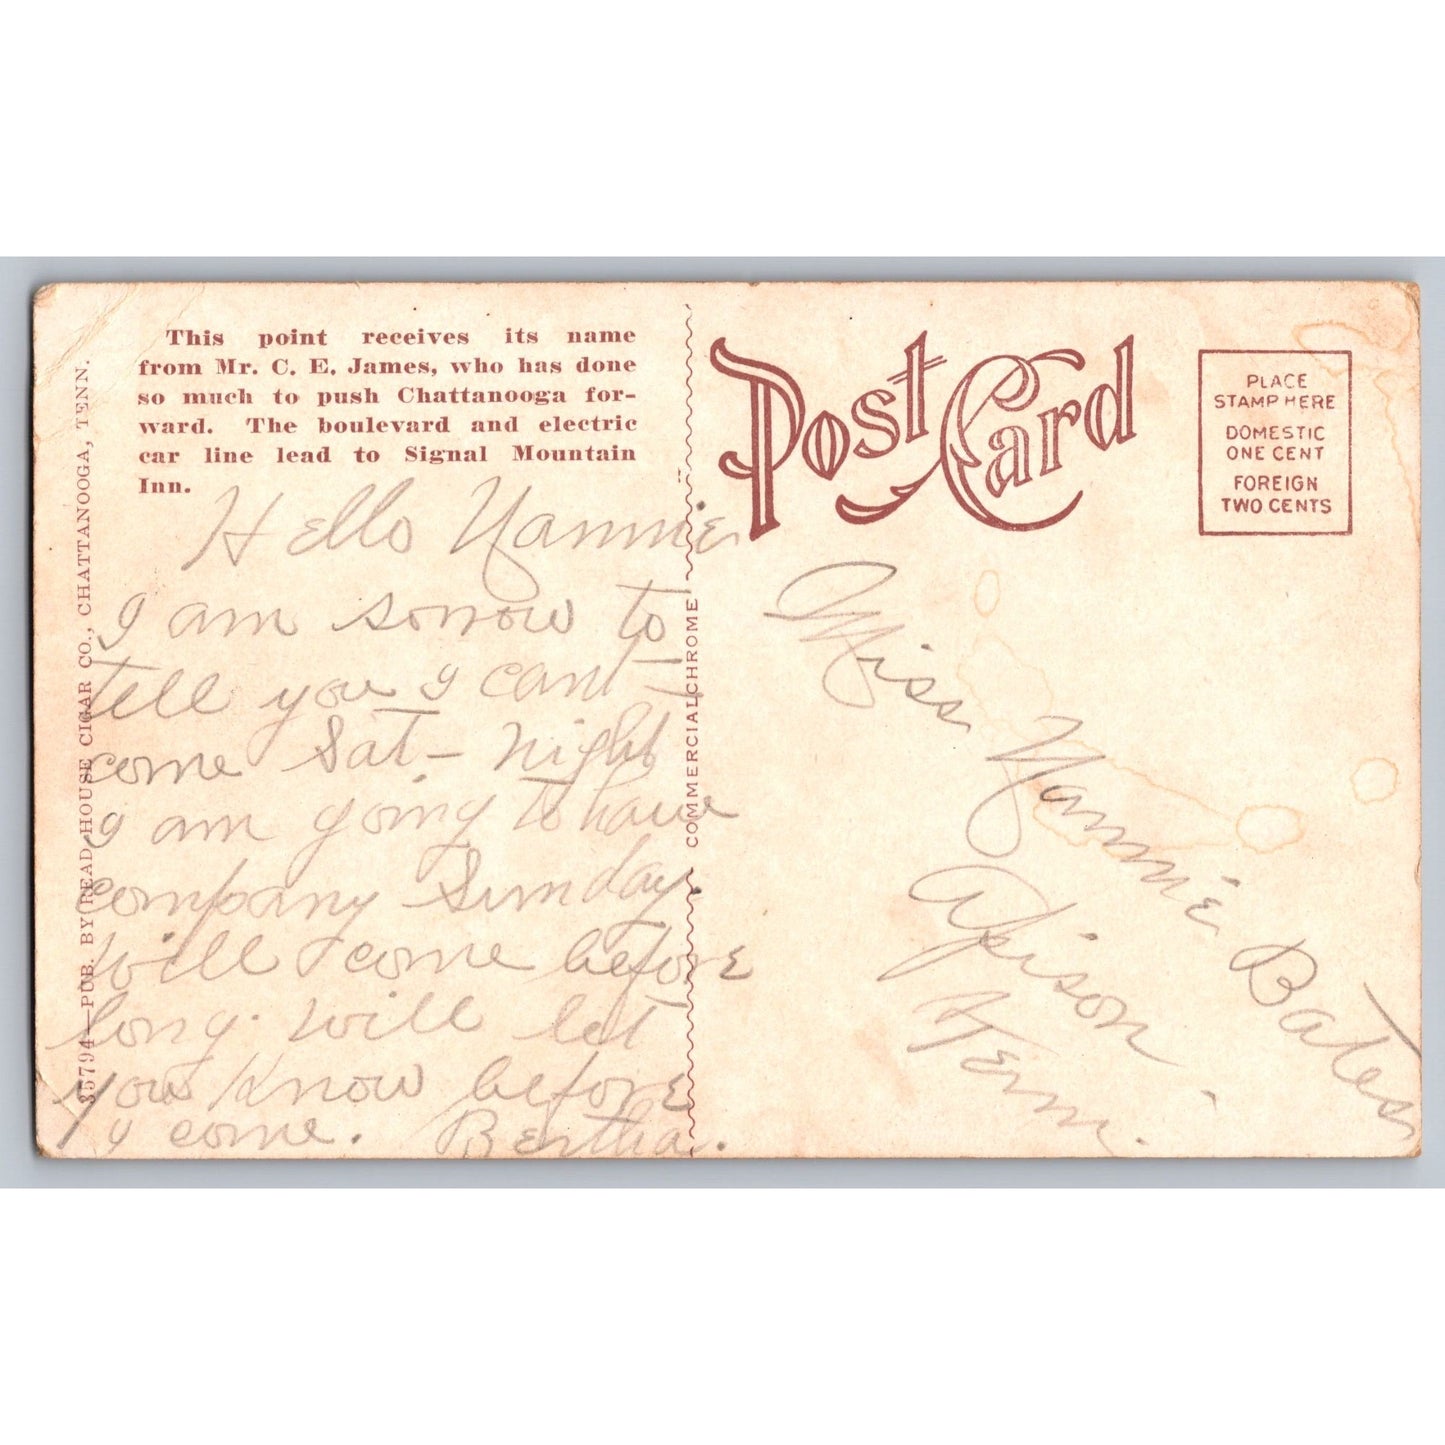 This point receives its name
from Mr. C. E. James, who has done
so much to push Chattanooga for-
ward. The boulevard and electric
car line lead to Signal Mountain
Inn.
35794—PUB. BY READ HOUSE CIGAR CO., CHATTANOOGA, TENN.
Hello Nannie
I am sorrow to
tell you I cant
come Sat- night
I am going to have
company Sunday.
Will come before
long. will let
you know before
I come. Bertha.
COMMERCIALCHROME
Post Card
PLACE
STAMP HERE
DOMESTIC
ONE CENT
FOREIGN
TWO CENTS
Miss Nannie Bates
Apison
Tenn.